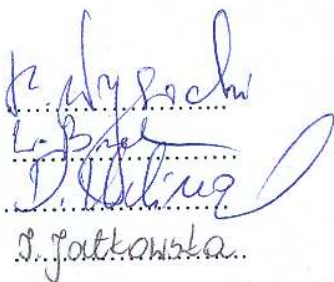 K. Wysocki
D. Malina
J. Jatkowska